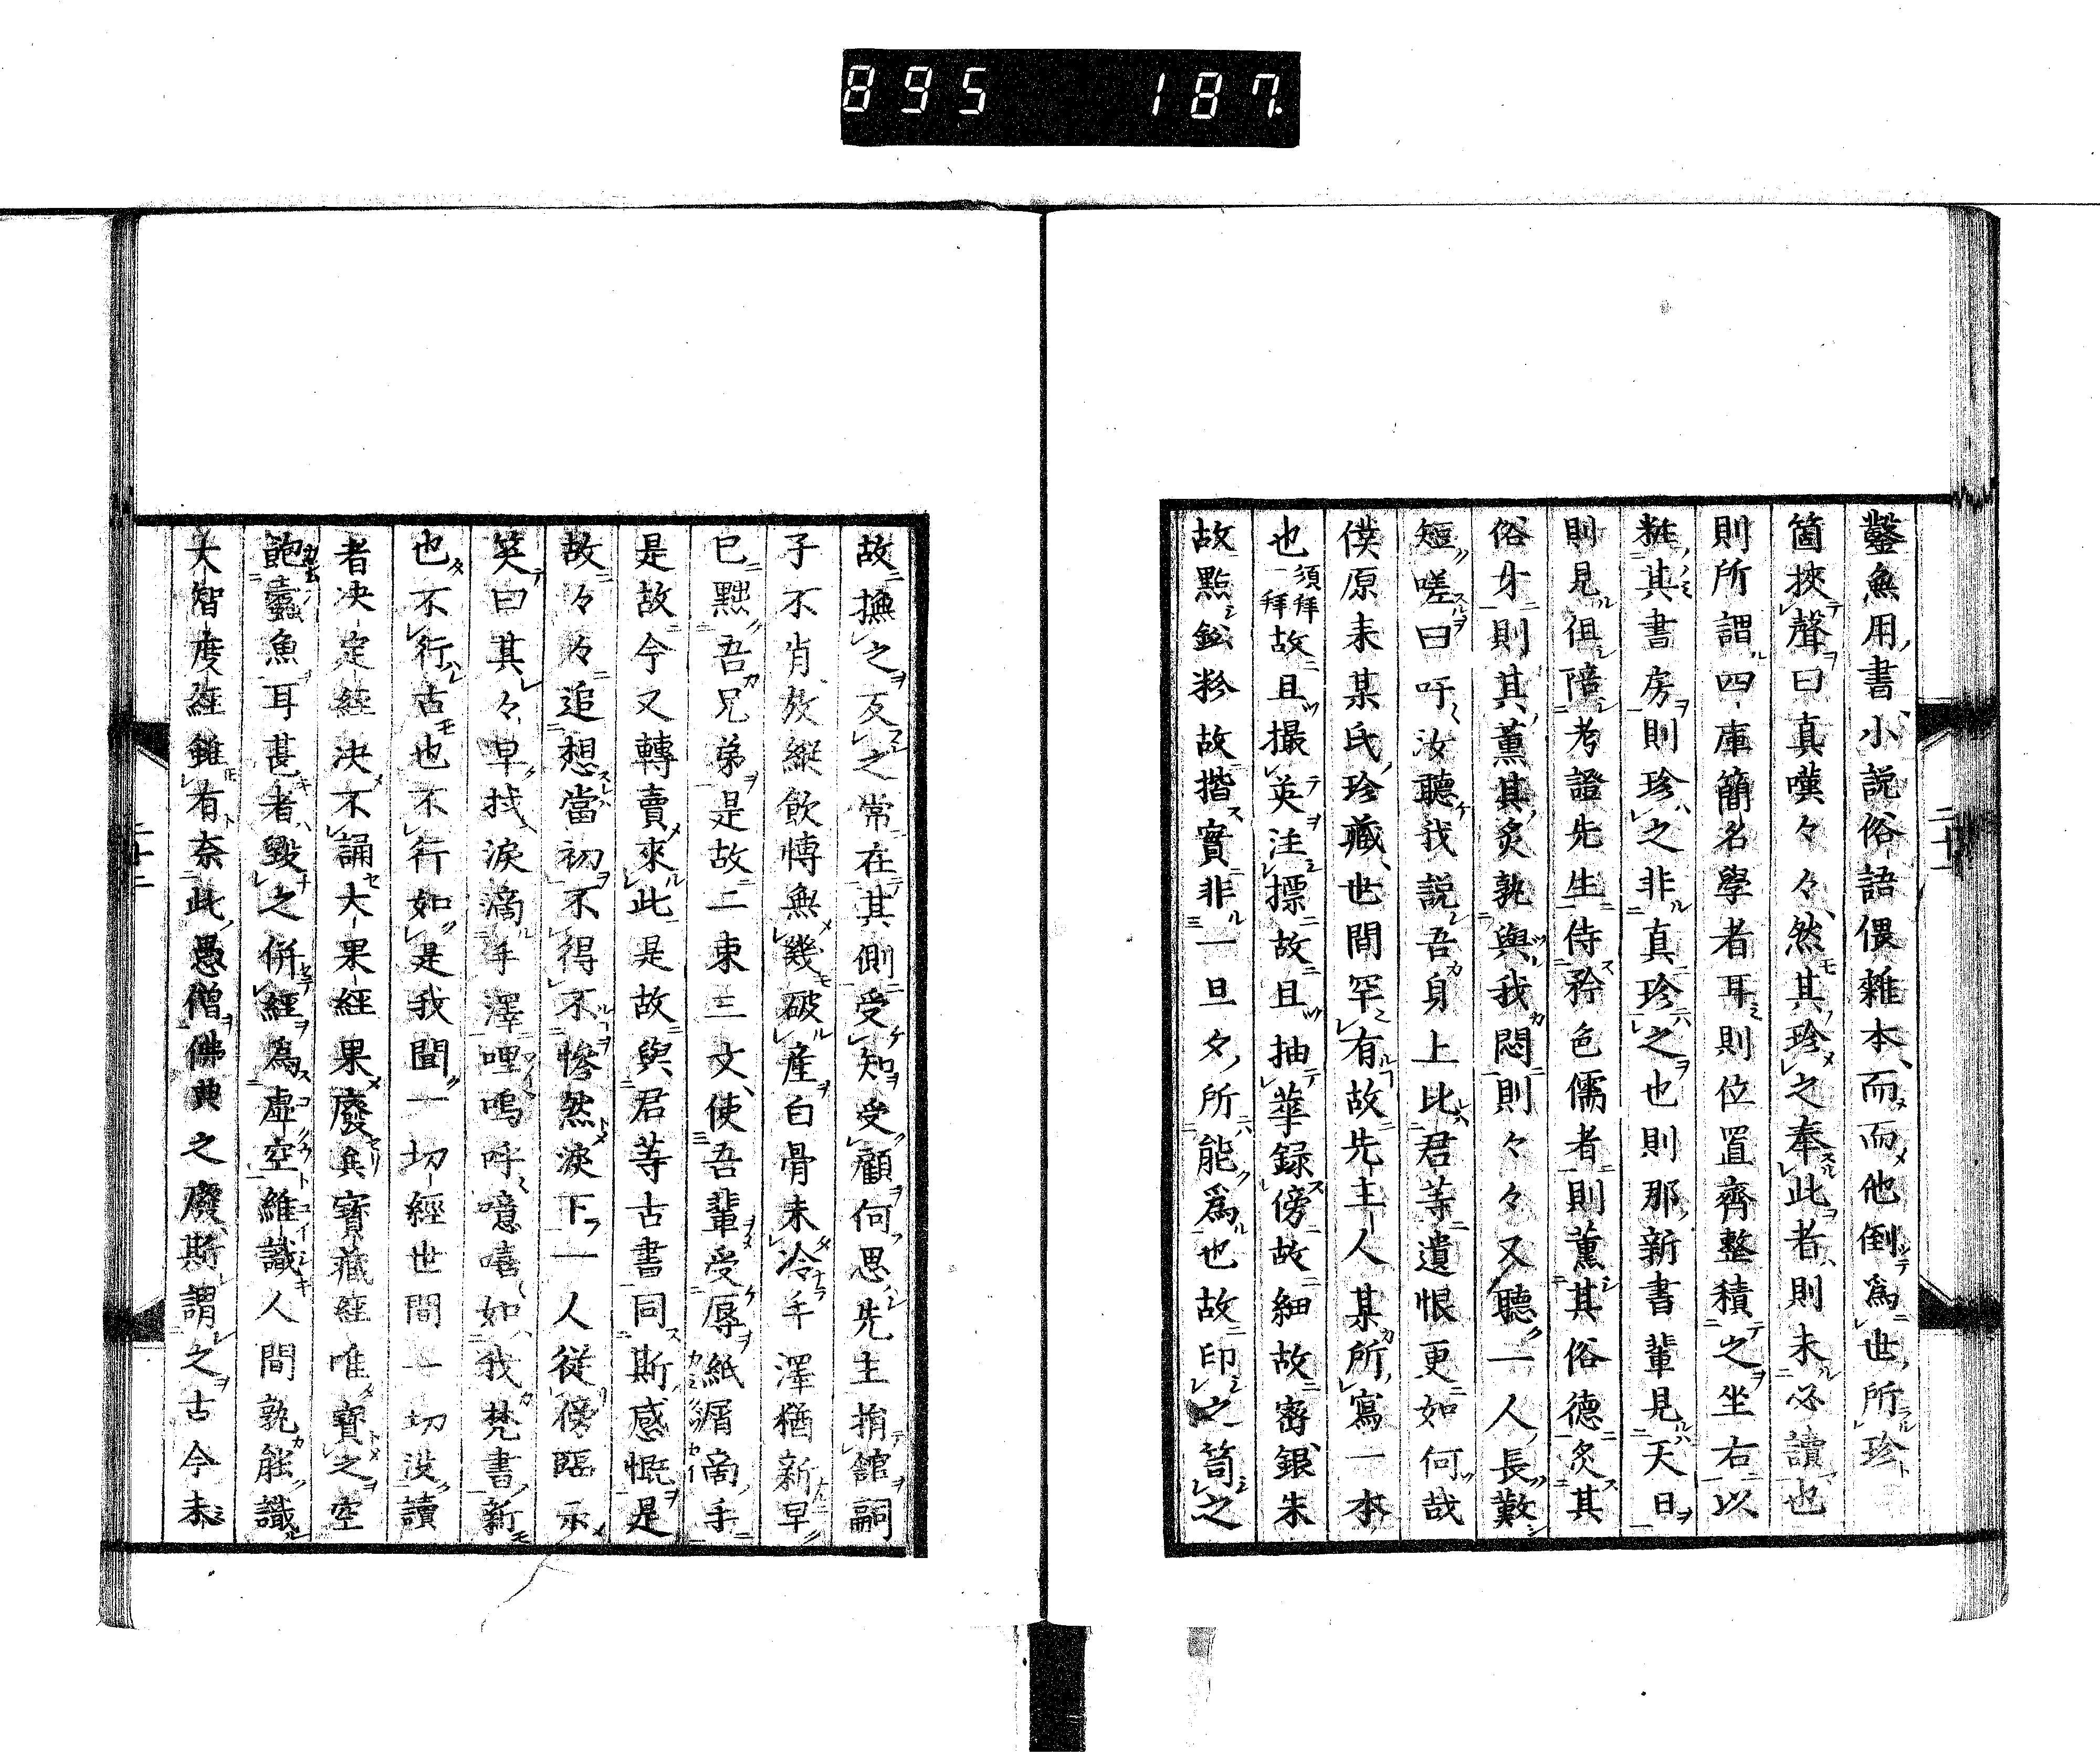 895 187.
鑿無用書小説俗語偎雜本而而他倒爲世所珍
箇挾聲曰真嘆々々然其珍之奉此者則未必讀也
則所謂四庫簡名學者耳則位置齊整積之坐右以
粧其書房則珍之非真珍之也則那新書輩見天日
則見徂陪考證先生侍矜色儒者則薫其俗德炙其
俗才則其薫其炙孰與我悶則々々又聽一人長歎
短嗟曰吁汝聽我説吾身上比君等遺恨更如何哉
僕原来某氏珍藏世間罕有故先主人某所寫一本
也須拜拜故且撮英注標故且抽華録傍故細故密銀朱
故點鉛粉故揩實非一旦夕所能爲也故印之笥之
二十一
故撫之反之常在其側受知受顧何思先主捐館嗣
子不肖放縦飲慱無幾破産白骨未冷手澤猶新早
已黜吾兄弟是故二束三文使吾輩受辱紙屑商手
是故今又轉賣來此是故與君等古書同斯感慨是
故々々追想當初不得不慘然淚下一人從傍臨示
笑曰其々早拭淚滴手澤哩嗚呼噫嘻如我梵書新
也不行古也不行如是我聞一切經世間一切没讀
者决定經决不誦大果經果廢矣寳藏經唯寳之空
飽蠹魚耳甚者毀之併經為虚空維識人間孰能識
大智度經雖有奈此愚僧佛典之廢斯謂之古今未
二十二